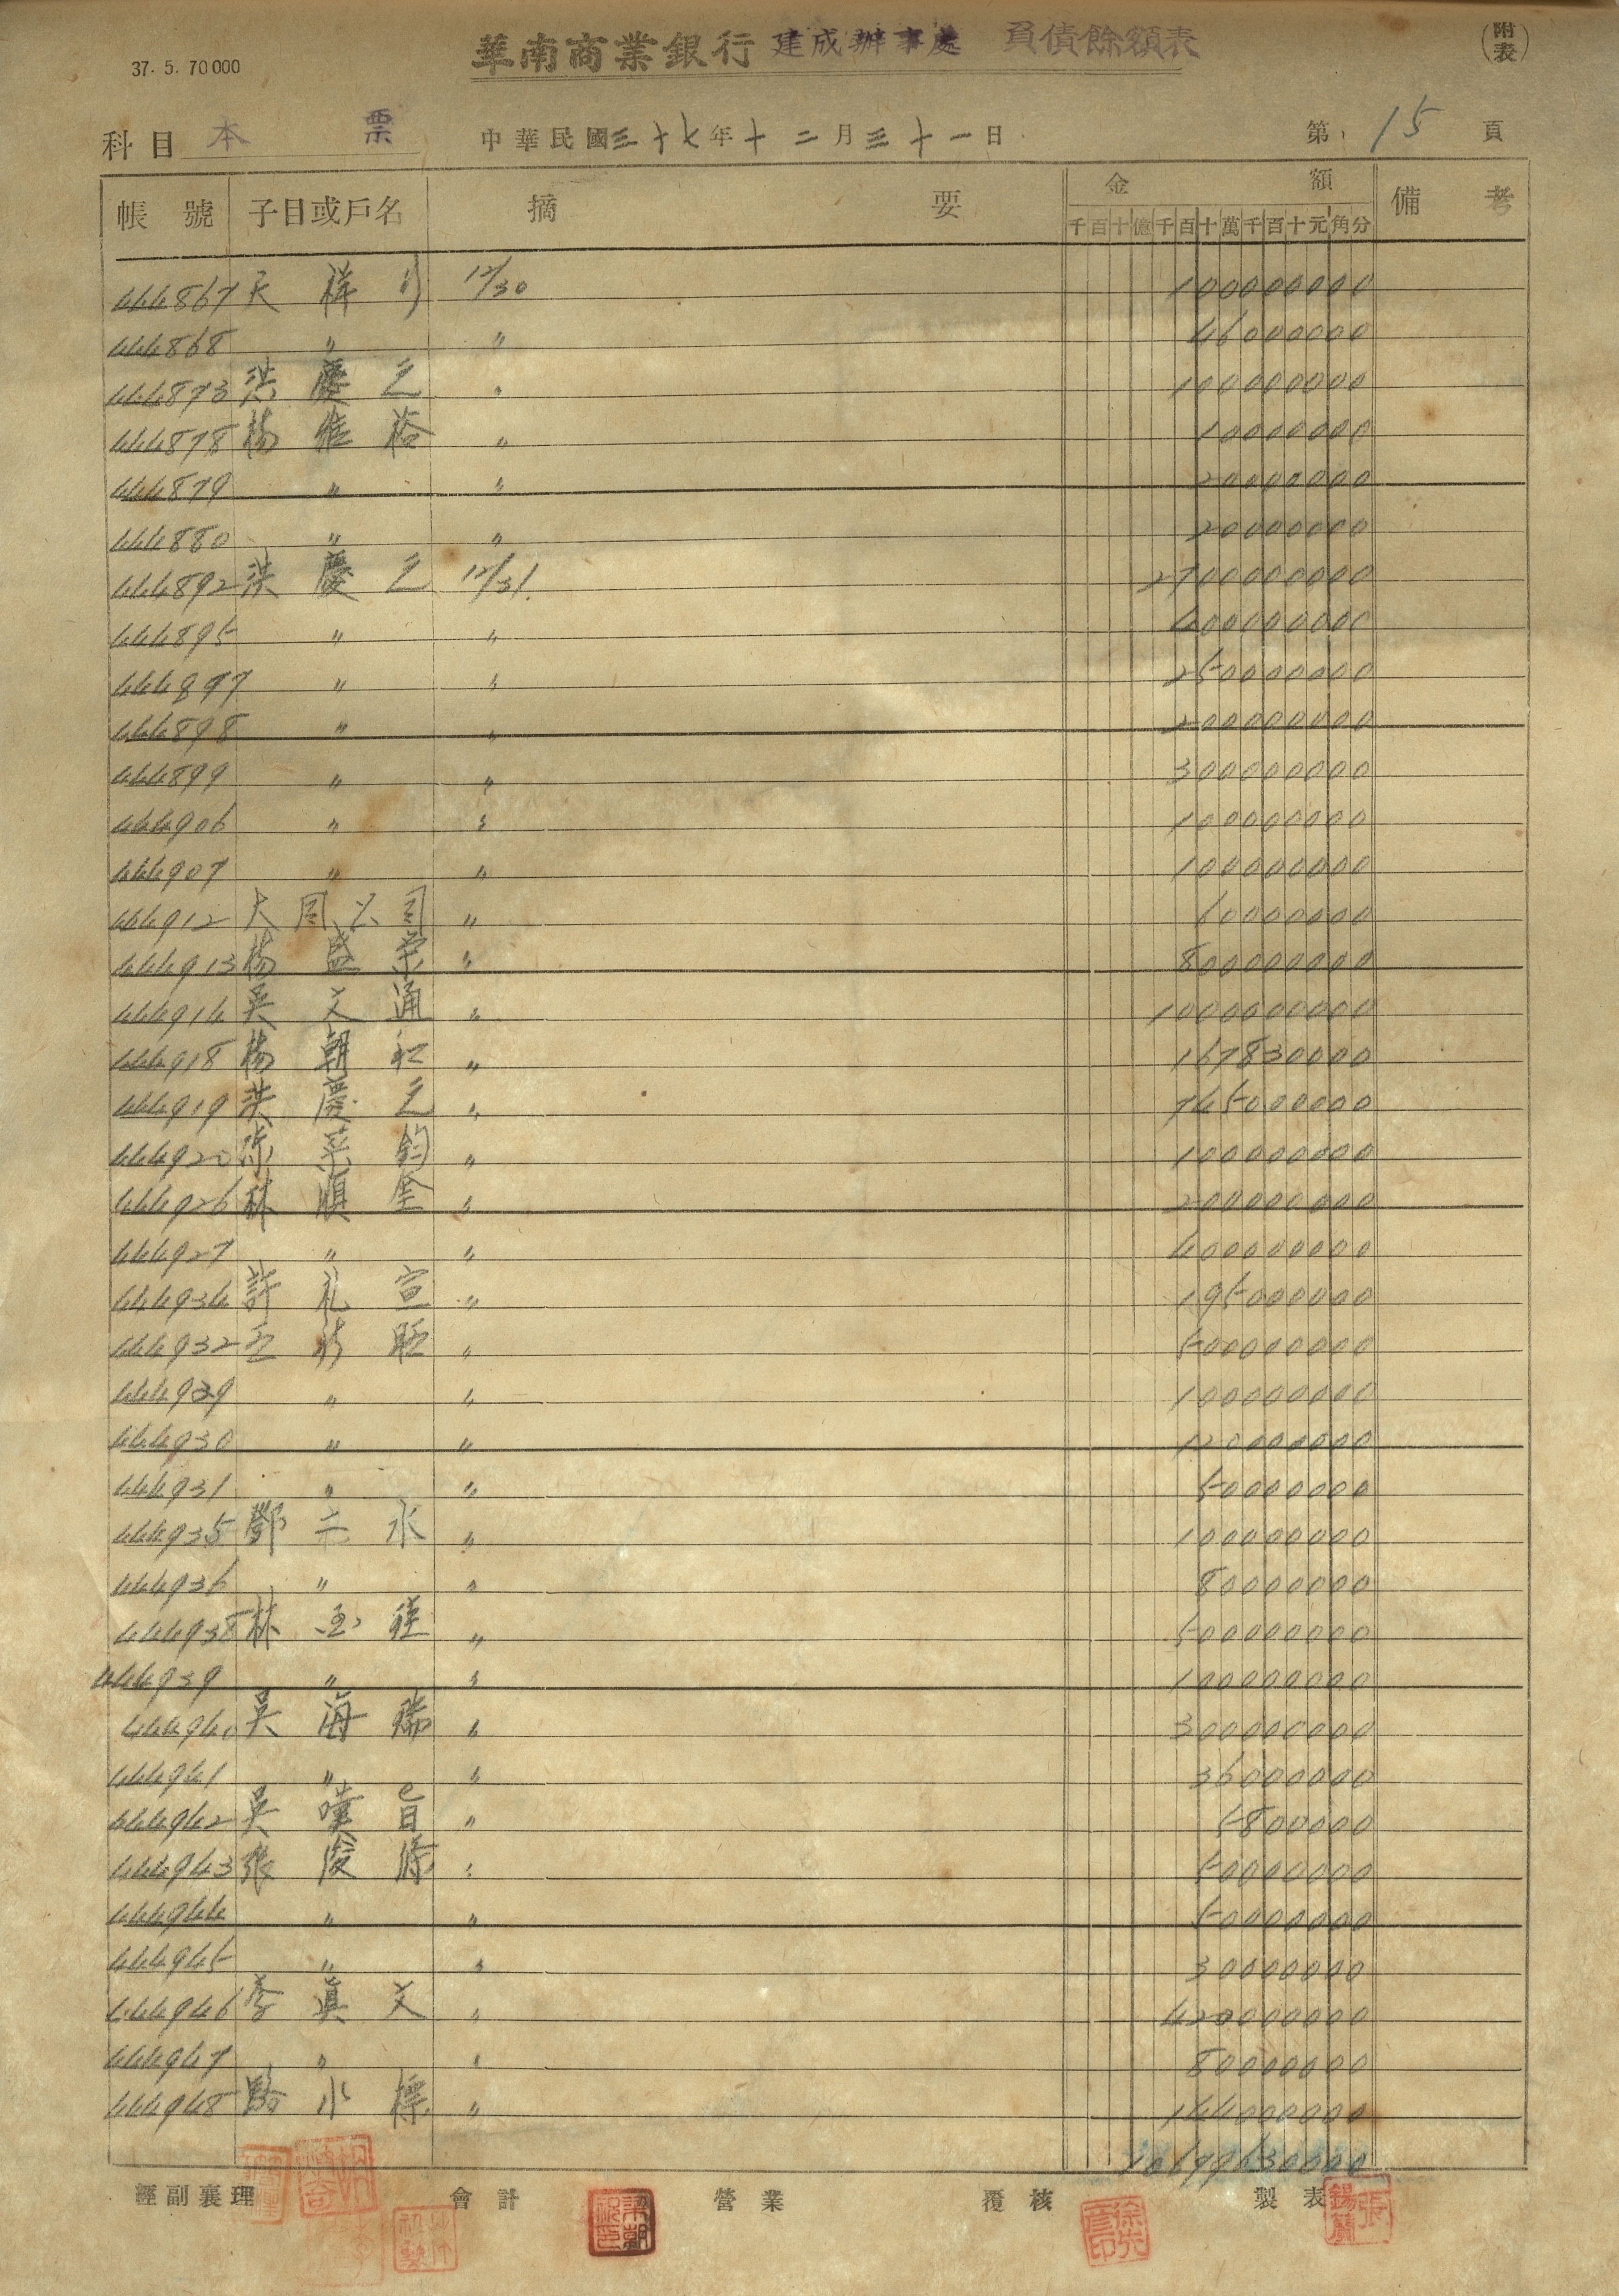 華南商業銀行 建成辦事處 負債餘額表
(附表)
37. 5. 70000
科目 本 票 中華民國三十七年十二月三十一日 第 15 頁
帳號 子目或戶名 摘要 金額 備考
千百十億千百十萬千百十元角分
444867 天祥行 12/30 100000000
444868 〃 〃 46000000
444873 洪慶之 〃 100000000
444878 楊維裕 〃 10000000
444879 〃 〃 20000000
444880 〃 〃 20000000
444892 洪慶之 12/31. 2700000000
444895 〃 〃 400000000
444897 〃 〃 250000000
444898 〃 〃 200000000
444899 〃 〃 300000000
444906 〃 〃 100000000
444907 〃 〃 100000000
444912 大同公司 〃 60000000
444913 楊盛榮 〃 800000000
444914 吳文通 〃 1000000000
444918 楊朝和 〃 167830000
444919 洪慶之 〃 745000000
444920 鈞 〃 100000000
444926 林順奎 〃 200000000
444927 〃 〃 400000000
444934 許礼宣 〃 195000000
444932 〃 500000000
444939 〃 〃 100000000
444930 〃 〃 120000000
444931 〃 〃 50000000
444935 鄧元永 〃 100000000
444936 〃 〃 80000000
444938 林 〃 500000000
444939 〃 〃 100000000
444940 吳海瑞 〃 300000000
444941 〃 〃 36000000
444942 吳嘆 〃 5800000
444943 張俊 〃 50000000
444944 〃 〃 50000000
444945 〃 〃 30000000
444946 李眞文 〃 420000000
444947 〃 〃 80000000
444948 駱水標 〃 144000000
10679630000
經副襄理 會計 營業 覆核 製表